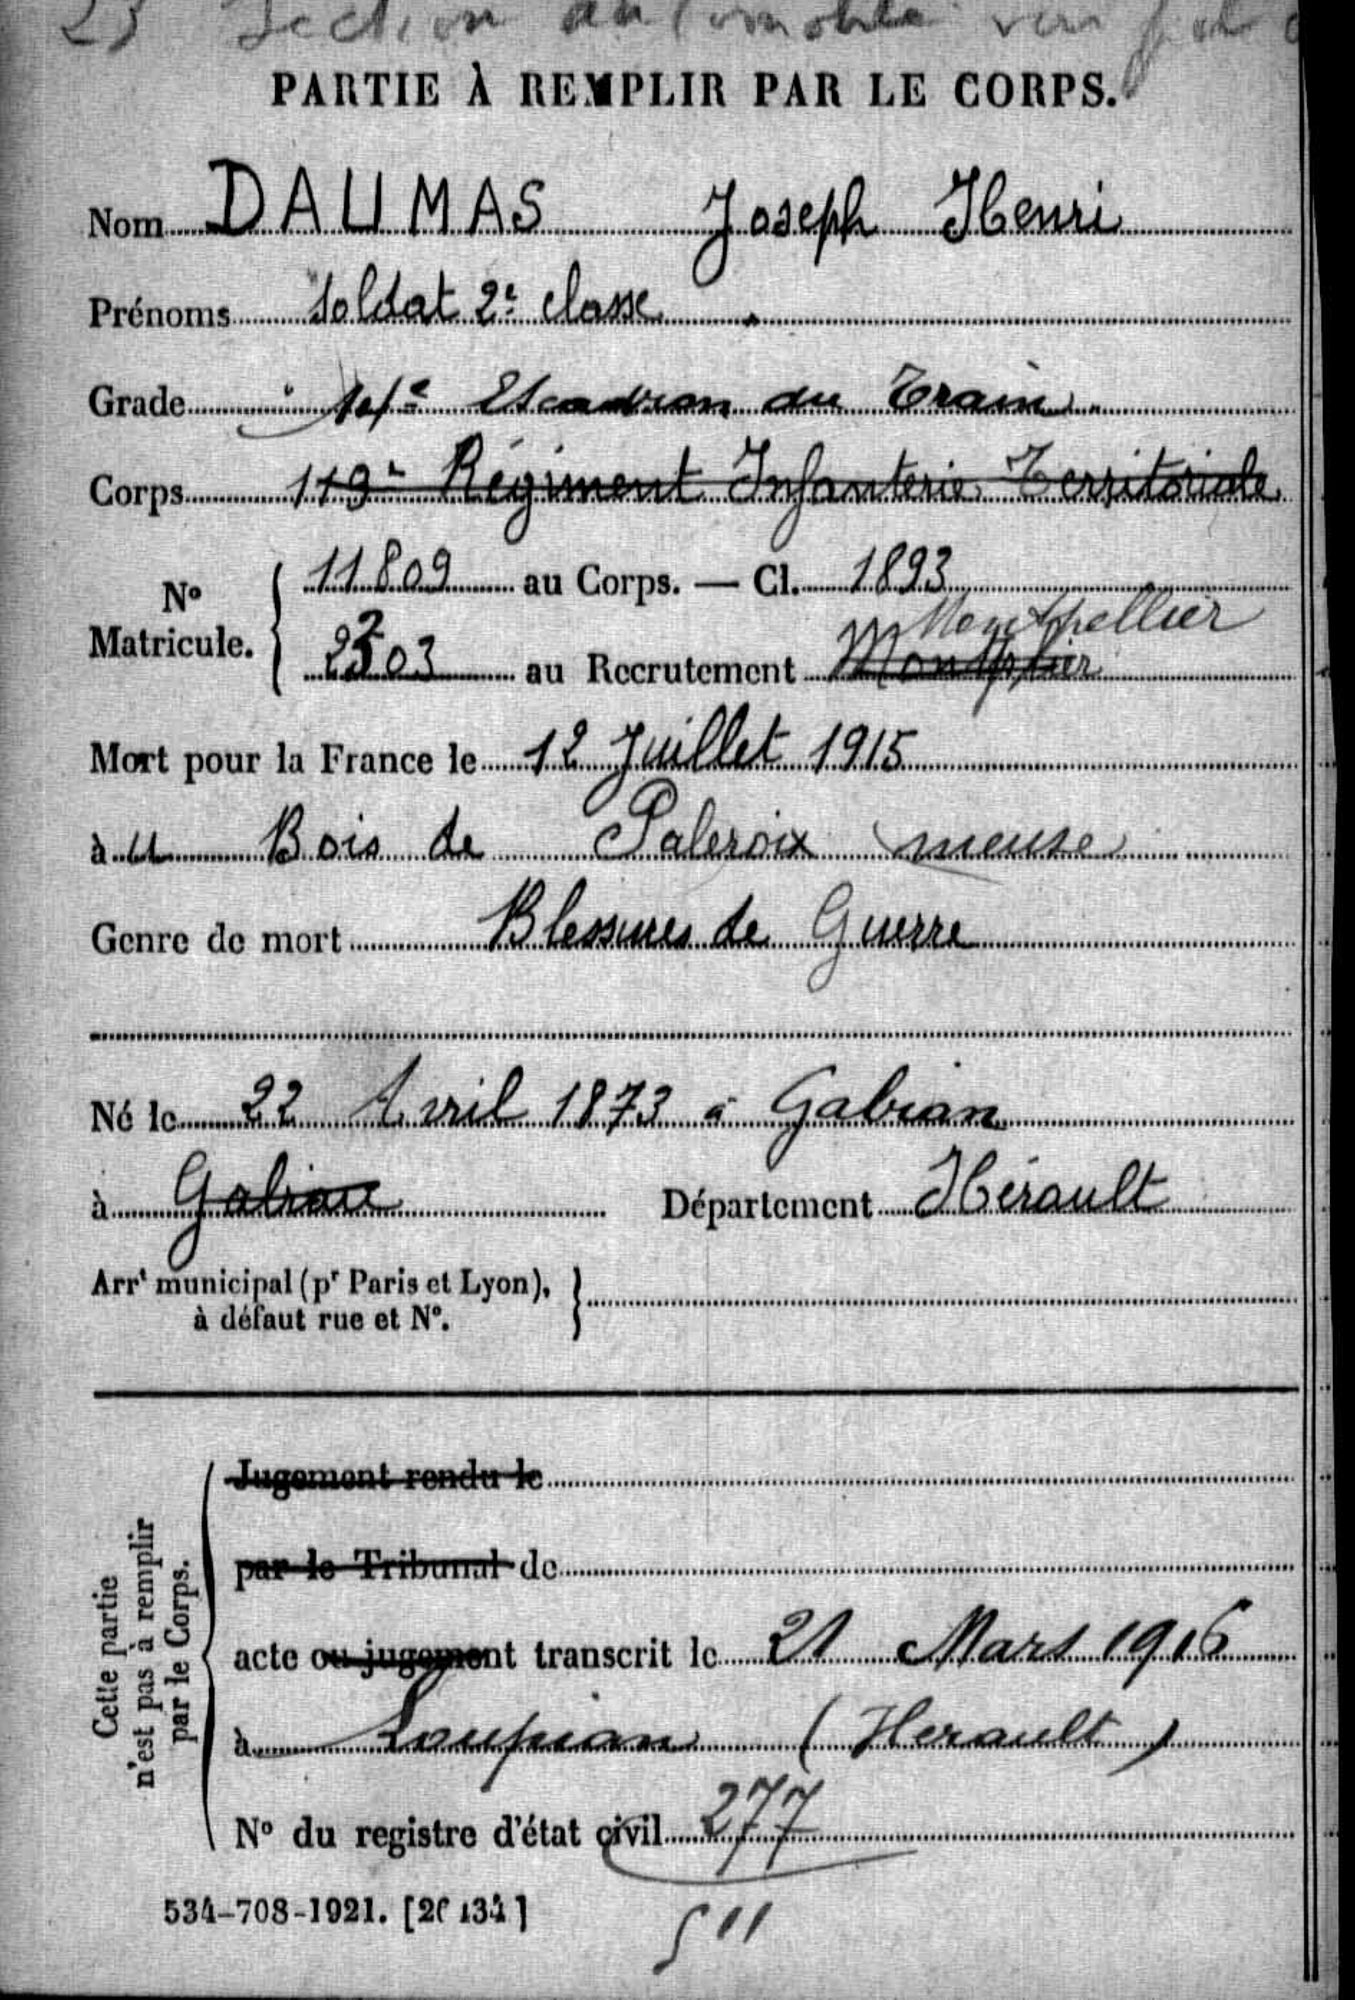 23 Section automobile
PARTIE À REMPLIR PAR LE CORPS.
Nom DAUMAS Joseph Henri
Prénoms Soldat 2e classe
Grade 14e Escadron du Train
Corps 119e Régiment Infanterie Territoriale
No Matricule. { 11809 au Corps. — Cl. 1893
Montpellier
2203 au Recrutement
Mort pour la France le 12 Juillet 1915
à u Bois de Paleroix meuse
Genre de mort Blessures de Guerre
Né le 22 Avril 1873 à Gabian
à Gabian Département Hérault
Arrt municipal (pr Paris et Lyon),
à défaut rue et No.
Cette partie
n'est pas à remplir
par le Corps.
Jugement rendu le
par le Tribunal de
acte ou jugement transcrit le 21 Mars 1916
à Loupian (Herault)
No du registre d'état civil 277
534-708-1921. [26434]